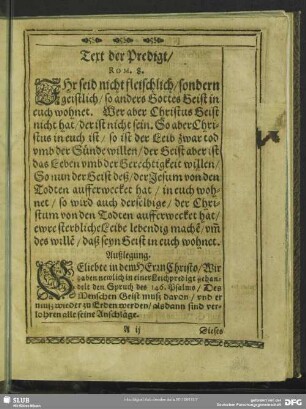 Text der Predigt/
ROM. 8.
IHr seid nicht fleischlich/ sondern
geistlich/ so anders Gottes Geist in
euch wohnet. Wer aber Christus Geist
nicht hat/ der ist nicht sein. So aber Chri-
stus in euch ist/ so ist der Leib zwar tod
vmb der Sünde willen/ der Geist aber ist
das Leben vmb der Gerechtigkeit willen/
So nun der Geist deß/ der Jesum von den
Todten aufferwecket hat/ in euch woh-
net/ so wird auch derselbige/ der Chri-
stum von den Todten aufferwecket hat/
ewre sterbliche Leibe lebendig machẽ/ vm̃
des willẽ/ daß seyn Geist in euch wohnet.
Außlegung.
GEliebte in dem HErrn Christo/ Wir
haben newlich in einer Leichpredigt gehan-
delt den Spruch des 146. Psalms/ Des
Menschen Geist muß davon/ vnd er
muß wieder zu Erden werden/ alsdann sind ver-
lohren alle seine Anschläge.
A ij
Dieses
SLUB
DFG